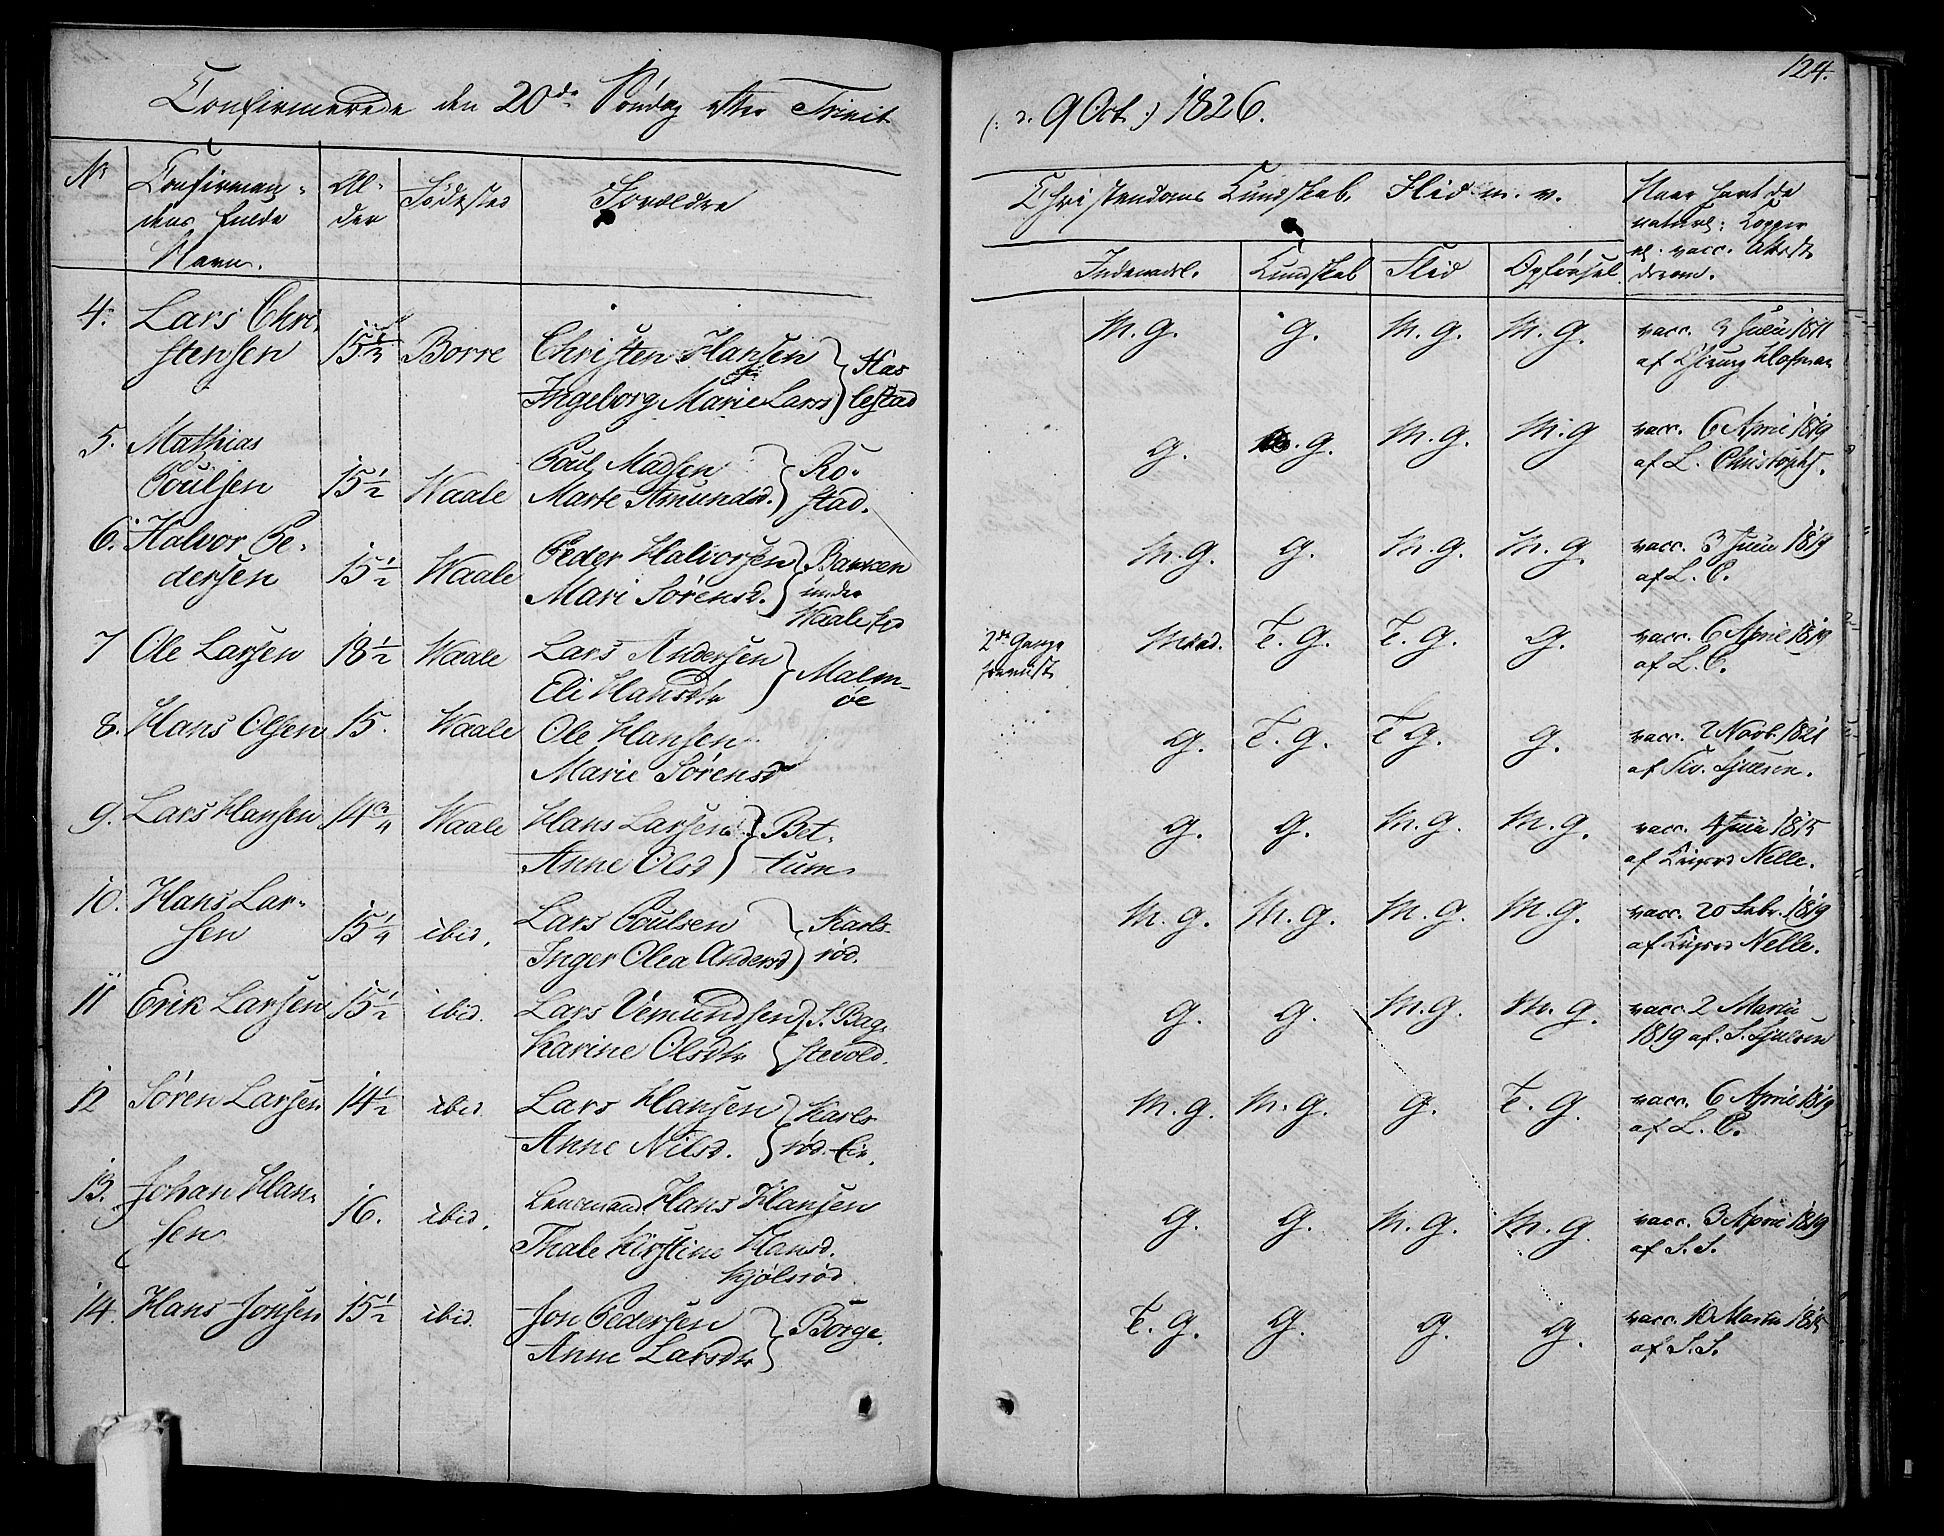 124.
Confirmerede den 20de Söndag efter Trinit. (: d. 9 Oct. :) 1826.
Nr
Confirman-
dens fulde
Navn.
Al-
der
Födested
Forældre
Christendoms Kundskab, Flid m. v.
Indenadl.
Kundskab
Flid
Opförsel
naturl: Kopper
el. vacc. Attest
derom.
4. Lars Chri-
stensen 15 Borre Christen Hansen
Ingeborg Marie Lars } Has
lestad
M. G. G. M. G. M. G. vacc. 3 Juni 1811
af Chirurg Hofman
5. Mathias
Poulsen 15 1/2 Waale Poul Madsen
Marte Amundsd. } Ro-
stad.
G. G. M. G. M. G vacc. 6 April 1819
af L. Christophs.
6. Halvor Pe-
dersen 15 1/2 Waale Peder Halvorsen
Mari Sörensd. } Bakken
under
Waale
M. G. G. M. G. M. G. vacc. 3 Juni 1819
af L. C.
7 Ole Larsen 18 1/2 Waale Lars Andersen
Eli Hansdtr } Malm-
öe
2de Gange
M. G. T. G. T. G. G. vacc. 6 April 1819
af L. C.
8. Hans Olsen 15. Waale Ole Hansen
Marie Sörensd
G. T. G. T G. G. vacc. 2 Novb. 1821
af
9. Lars Hansen 14 3/4 Waale Hans Larsen
Anne Olsd } Bet-
tum.
G. G. M. G. M. G. vacc. 4 Juni 1815
af Nelle.
10. Hans Lar-
sen 15 1/4 ibid. Lars Poulsen
Inger Olea Andersd } Karls-
röd.
M. G. M. G. M. G. M. G. vacc. 20 Febr. 1819
af Nelle.
11 Erik Larsen 15 1/2 ibid. Lars Vemundsen
Karine Olsdtr } S. Bag-
stevold.
G. G. M. G. M. G. vacc. 2 Martii
1819 af. S.
12 Sören Larsen 14 1/2 ibid. Lars Hansen
Anne Nilsd. } Karls-
röd. Eie.
M. G. M. G. G. T. G. vacc. 6 April 1819
af L. C.
13. Johan Han-
sen 16. ibid. Lensmand Hans Hansen
Thale Kirstine Hansd.
Kjölsröd
G. G. M. G. M. G. vacc. 3 April 1819
af S. S.
14. Hans Jonsen 15 1/2 ibid. Jon Pedersen
Anne Larsdtr } Börge.
T. G. G. G. G. vacc. 10 Martii
af S. S.